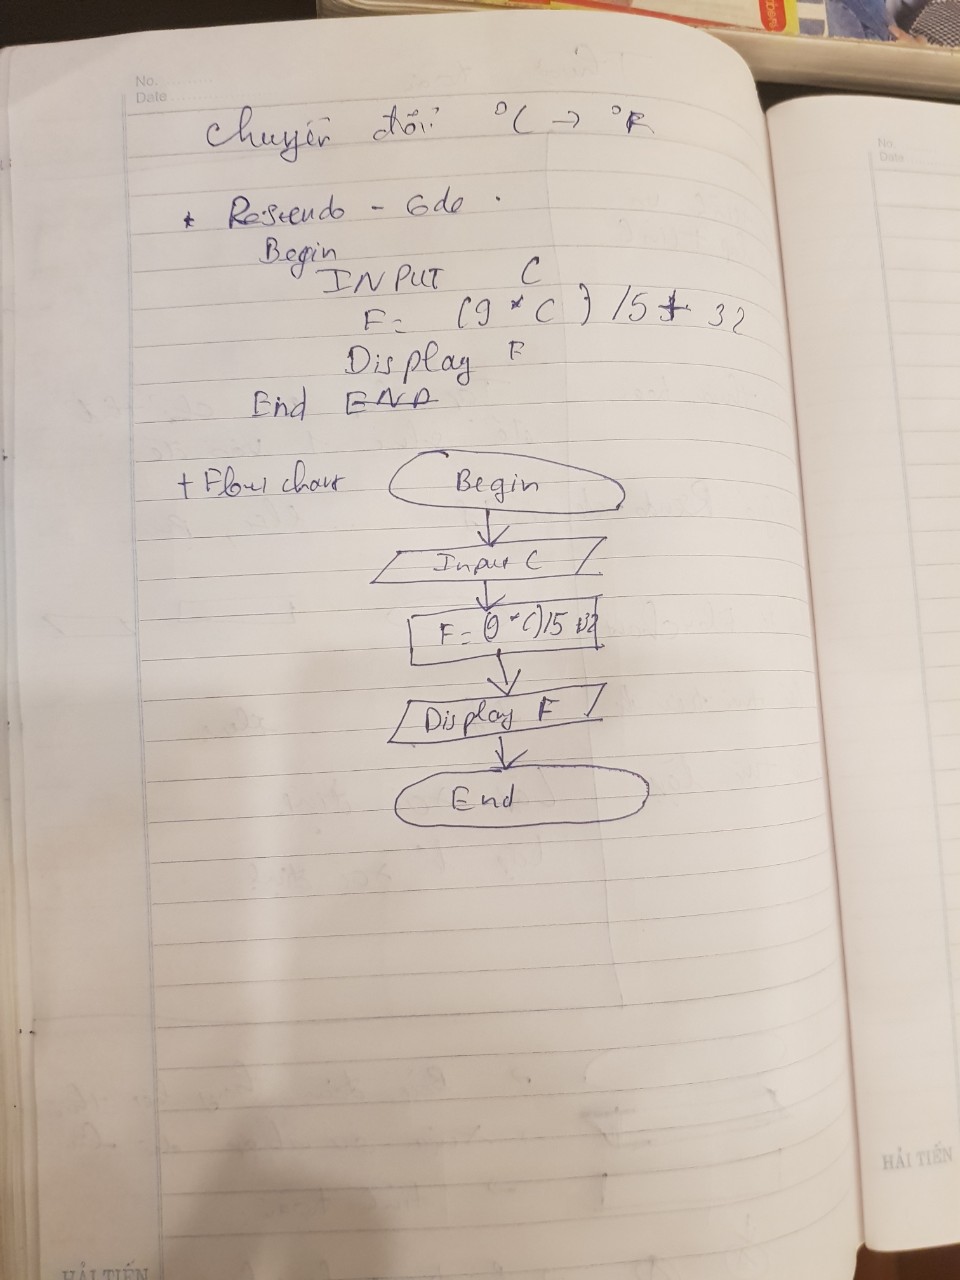 No.
Date
Chuyển đổi: °C → °F
* Pseudo - Code.
Begin
INPUT C
F = (9 * C) / 5 + 32
Display F
End END
+ Flow chart
Begin
Input C
F = (9 * C) / 5 + 32
Display F
End
HẢI TIẾN
No.
Date
HẢI TIẾN